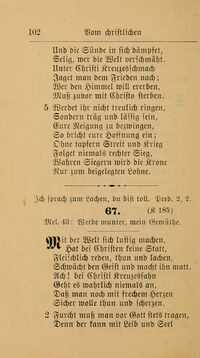 102 Vom christlichen
Und die Sünde in sich dämpfet,
Selig, wer die Welt verschmäht.
Unter Christi Kreuzesschmach
Jaget man dem Frieden nach;
Wer den Himmel will ererben,
Muß zuvor mit Christo sterben.
5 Werdet ihr nicht treulich ringen,
Sondern träg und läßig sein,
Eure Neigung zu bezwingen,
So bricht eure Hoffnung ein;
Ohne tapfern Streit und Krieg
Folget niemals rechter Sieg,
Wahren Siegern wird die Krone
Nur zum beigelegten Lohne.
Ich sprach zum Lachen, du bist toll. Pred. 2, 2.
67. (K 185)
Mel. 43: Werde munter, mein Gemüthe.
Mit der Welt sich lustig machen,
Hat bei Christen keine Statt,
Fleischlich reden, thun und lachen,
Schwächt den Geist und macht ihn matt.
Ach! bei Christi Kreuzesfahn
Geht es wahrlich niemals an,
Daß man noch mit frechem Herzen
Sicher wolle thun und scherzen.
2 Furcht muß man vor Gott stets tragen,
Denn der kann mit Leib und Seel